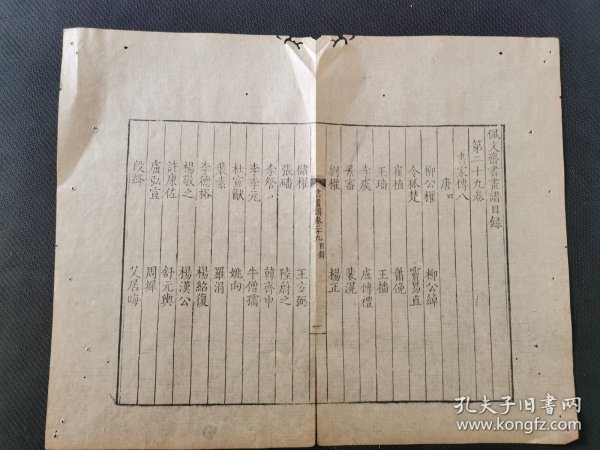 佩文齋書畫譜目錄
第二十九卷
書家傳八
唐四
柳公權 柳公綽
令狐楚 竇易直
崔植 蕭俛
王璠 王播
李虞 盧傳禮
吳審 裴滉
劉權 楊正
書畫譜卷二十九目錄
儲權 王玄弼
張磻 陸蔚之
李詧 韓齊申
李季元 牛僧孺
杜宣猷 姚向
裴素 羅涓
李德裕 楊紹復
楊敬之 楊漢公
許康佐 舒元輿
盧弘宣 周墀
段絳 艾居晦
孔夫子旧书网
www.kongfz.com